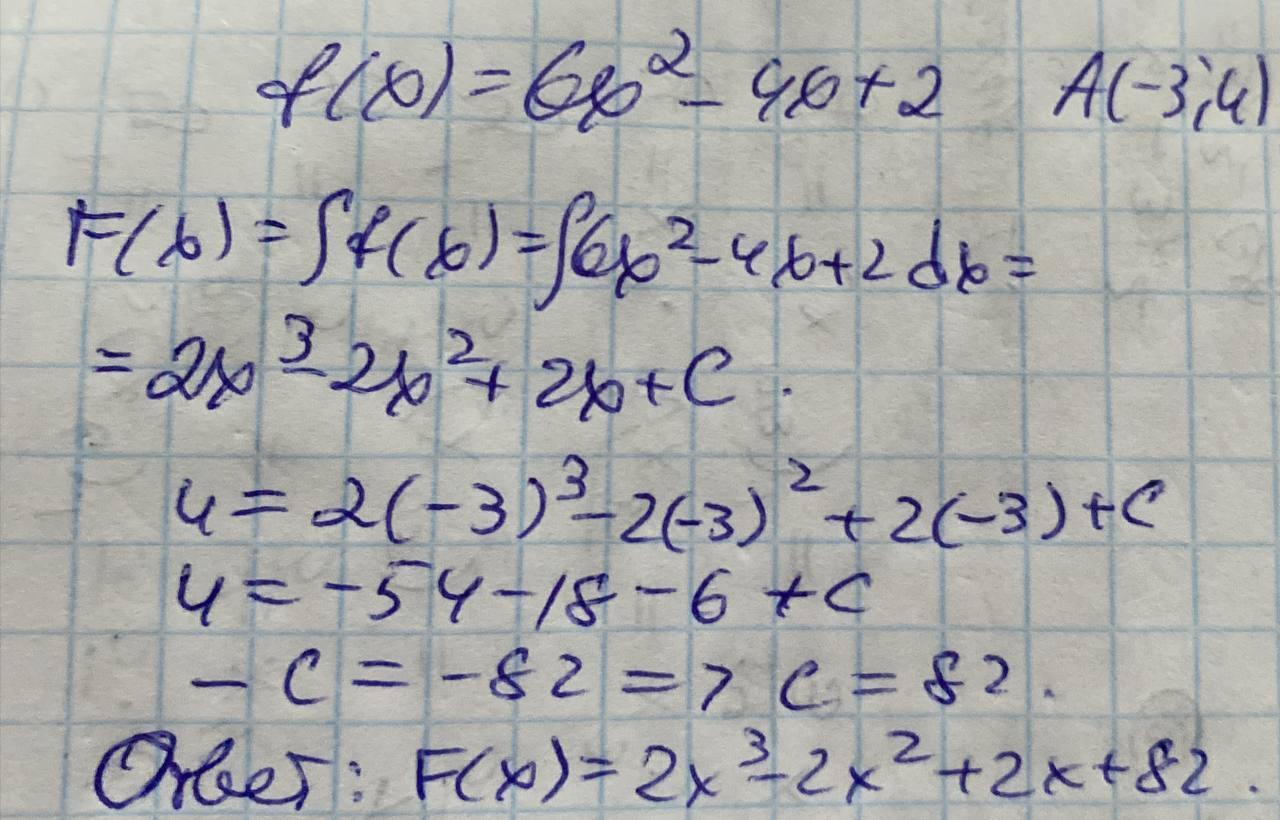 f(x)=6x²-4x+2 A(-3;4)
F(x)=∫f(x)=∫6x²-4x+2dx=
=2x³-2x²+2x+C.
4=2(-3)³-2(-3)²+2(-3)+C
4=-54-18-6+C
-C=-82=>C=82.
Ответ: F(x)=2x³-2x²+2x+82.